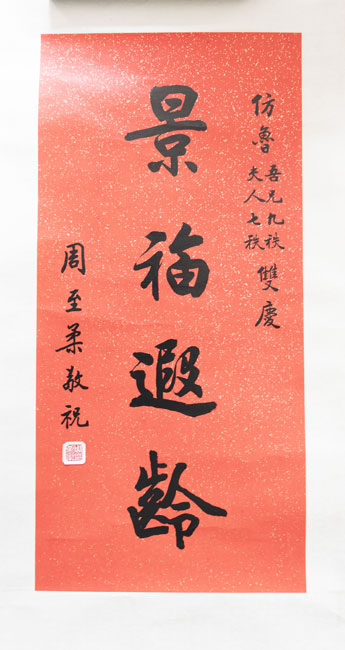 仿魯
吾兄九秩
夫人七秩
雙慶
景福遐齡
周至柔敬祝